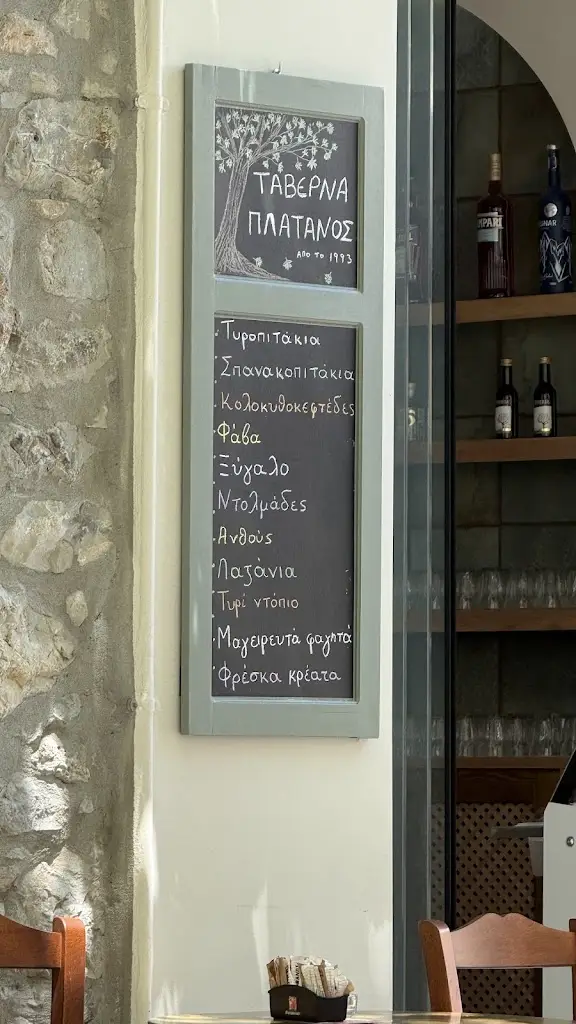 ΤΑΒΕΡΝΑ
ΠΛΑΤΑΝΟΣ
ΑΠΟ ΤΟ 1993
Τυροπιτάκια
Σπανακοπιτάκια
Κολοκυθοκεφτέδες
Φάβα
Ξύγαλο
Ντολμάδες
Ανθούς
Λαζάνια
Τυρί ντόπιο
Μαγειρευτά φαγητά
Φρέσκα κρέατα
MPARI